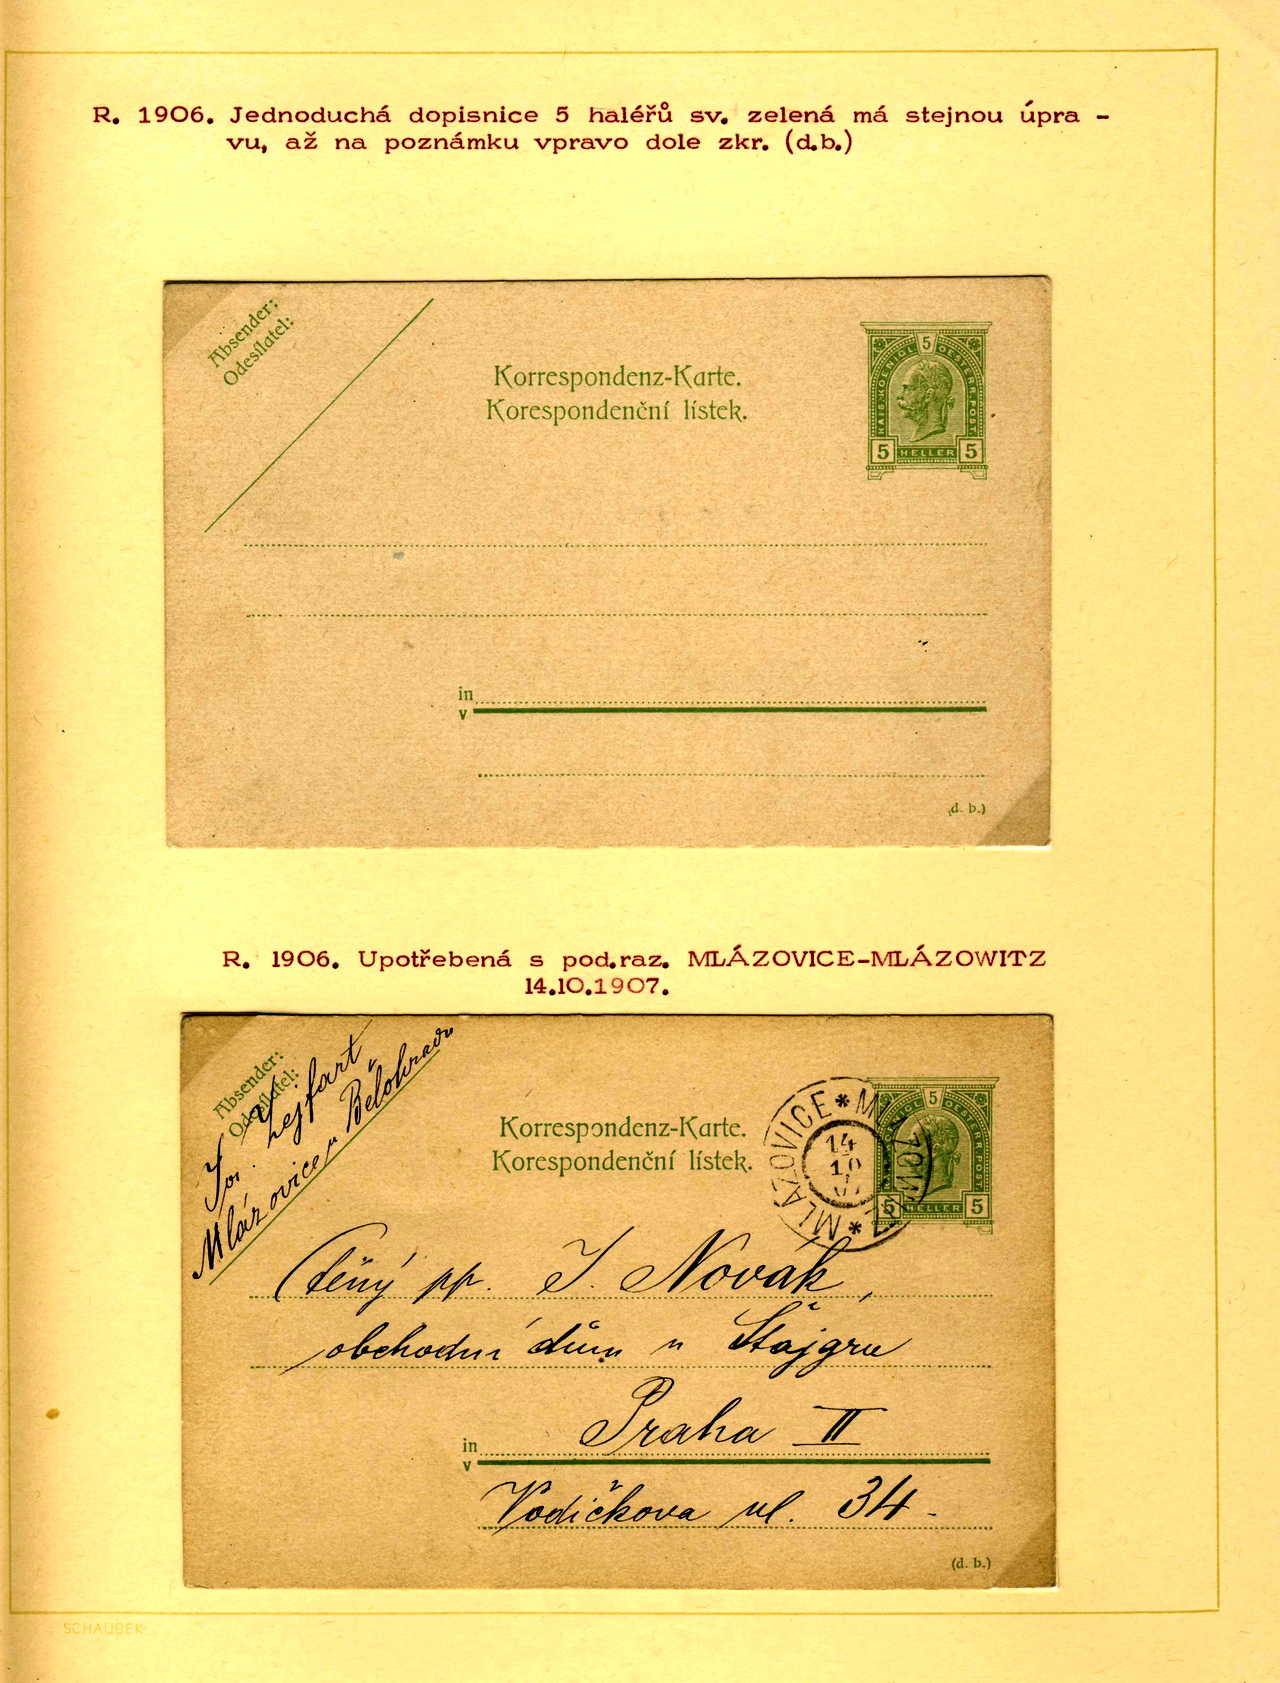 R. 1906. Jednoduchá dopisnice 5 haléřů sv. zelená má stejnou úpra -
vu, až na poznámku vpravo dole zkr. (d.b.)
Absender:
Odesílatel:
Korrespondenz-Karte.
Korespondenční lístek.
5
KAIS. KOENIGL. OESTERR. POST.
5 HELLER 5
in
v
(d. b.)
R. 1906. Upotřebená s pod.raz. MLÁZOVICE-MLÁZOWITZ
14.10.1907.
Absender:
Odesílatel:
Jos. Zejfart
Mlázovice u Bělohradu
Korrespondenz-Karte.
Korespondenční lístek.
MLÁZOVICE * MLÁZOWITZ *
14
10
5
KOENIGL. OESTERR. POST.
5 HELLER 5
Ctěný pp. J. Novák,
obchodní dům u Štajgru
in
v
Praha II
Vodičkova ul. 34 -
(d. b.)
SCHAUBEK